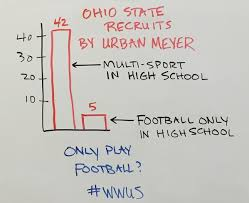 OHIO STATE
RECRUITS
BY URBAN MEYER
42
40
30
20
10
MULTI-SPORT
IN HIGH SCHOOL
5
FOOTBALL ONLY
IN HIGH SCHOOL
ONLY PLAY
FOOTBALL?
#WWUS